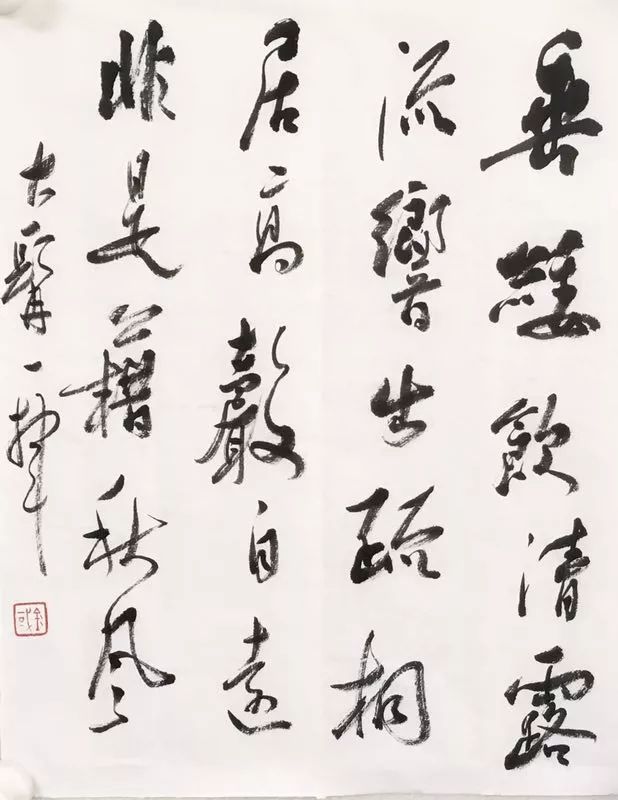 垂緌飲清露
流響出疏桐
居高聲自遠
非是藉秋風
大髯一揮